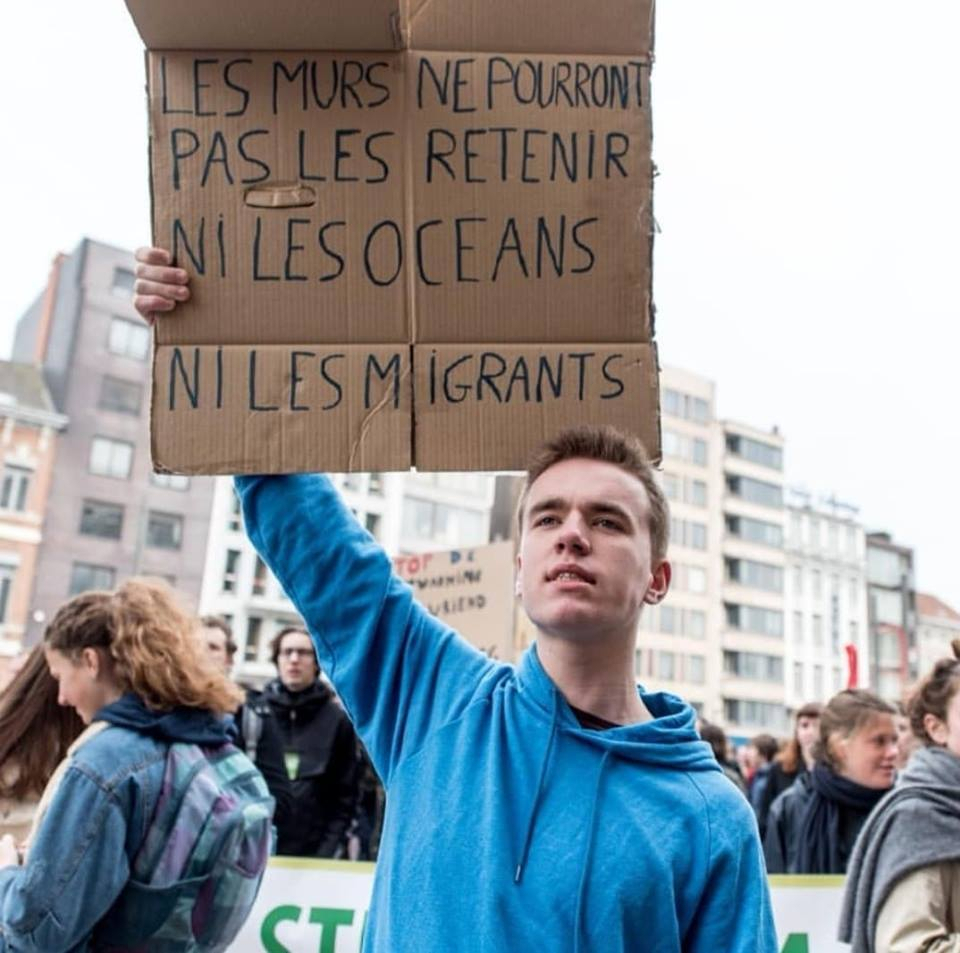 LES MURS NE POURRONT
PAS LES RETENIR
NI LES OCEANS
NI LES MIGRANTS
DE
ST